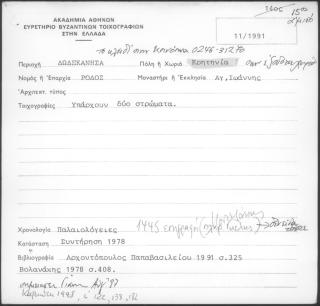 ΑΚΑΔΗΜΙΑ ΑΘΗΝΩΝ
ΕΥΡΕΤΗΡΙΟ ΒΥΖΑΝΤΙΝΩΝ ΤΟΙΧΟΓΡΑΦΙΩΝ
ΣΤΗΝ ΕΛΛΑΔΑ
11/1991
το κλειδί στην 0246-31270
Περιοχή ΔΩΔΕΚΑΝΗΣΑ Πόλη ή Χωριό Κρητηνία
Νομός ή Επαρχία ΡΟΔΟΣ Μοναστήρι ή Εκκλησία Αγ.Ιωάννης
Αρχιτεκτ. τύπος
Τοιχογραφίες Υπάρχουν δύο στρώματα.
Χρονολογία Παλαιολόγειες 1445 επιγραφή
Κατάσταση Συντήρηση 1978
Βιβλιογραφία Αρχοντόπουλος Παπαβασιλείου 1991 σ.325
Βολανάκης 1978 σ.408.